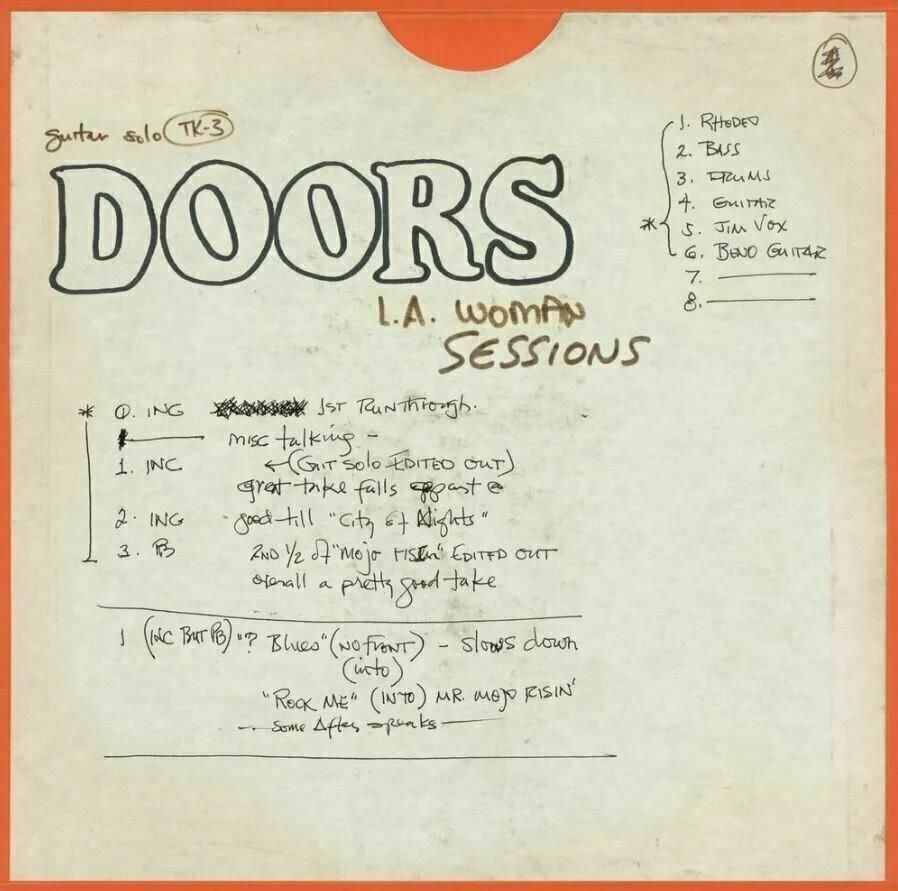 guitar solo TK-3
DOORS
L.A. WOMAN
SESSIONS
1. RHODES
2. BASS
3. DRUMS
4. GUITAR
5. JIM VOX
* 6. BEND GUITAR
7.
8.
* 0. ING 1ST RUNTHROUGH.
misc talking -
1. INC ←(GUIT SOLO EDITED OUT)
great take falls appast @
2. ING good till "City of Nights"
3. PB 2ND 1/2 of "Mojo RISIN" EDITED OUT
overall a pretty good take
1 (INC BUT PB) "? Blues" (NO FRONT) - slows down
(into)
"ROCK ME" (INTO) MR. MOJO RISIN'
- Some After speaks -